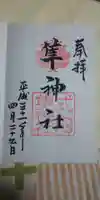 奉拝
隼神社
平成三十一年
四月二十九日